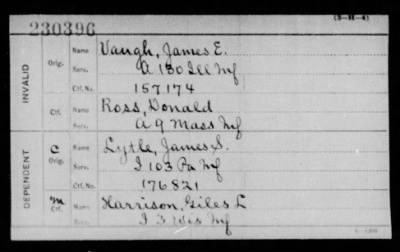 (3-11-4)
230396
INVALID
Orig.
Name Vaugh, James E.
Serv. A 130 Ill Inf
Ctf. No. 157174
Ctf.
Name Ross, Donald
Serv. A 9 Mass Inf
DEPENDENT
C
Orig.
Name Lytle, James S.
Serv. I 103 Pa Inf
Ctf. No. 176821
m
Ctf.
Name Harrison, Giles L
Serv. I 3 Wis Inf